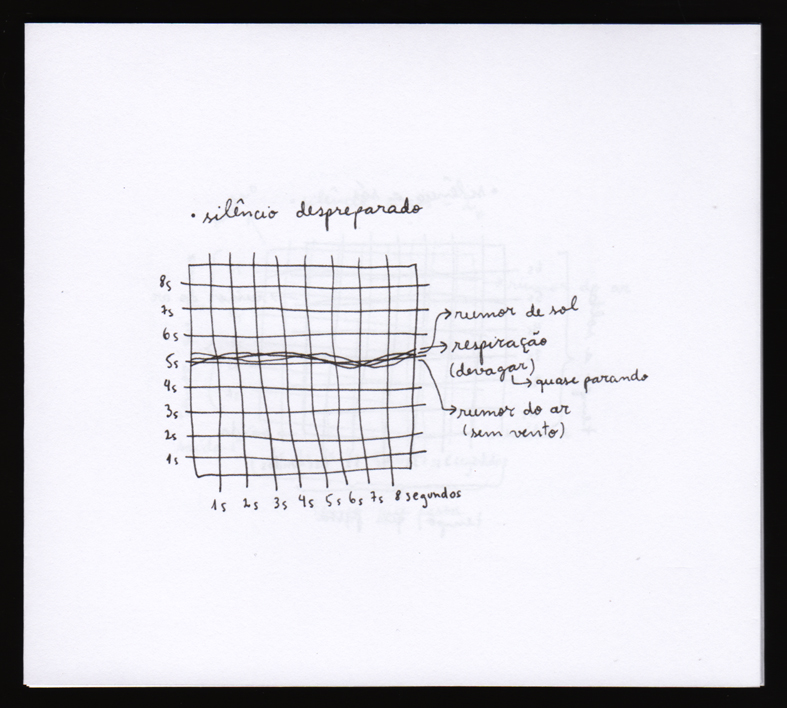 • silêncio despreparado
8s
7s
6s
5s
4s
3s
2s
1s
rumor de sol
respiração
(devagar)
quase parando
rumor do ar
(sem vento)
1s 2s 3s 4s 5s 6s 7s 8 segundos